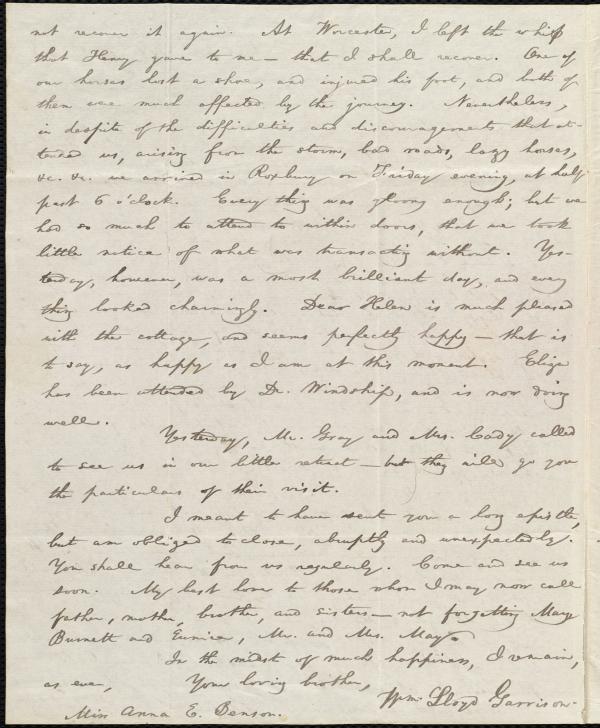 not recover it again. At Worcester, I left the whip
that Henry gave to me — that I shall recover. One of
our horses lost a shoe, and injured his foot, and both of
them were much affected by the journey. Nevertheless,
in despite of the difficulties and discouragements that at-
tened us, arising from the storm, bad roads, lazy horses,
&c. &c. we arrived in Roxbury on Friday evening, at half
past 6 o'clock. Every thing was gloomy enough; but we
had so much to attend to within doors, that we took
little notice of what was transacting without. Yes-
terday, however, was a most brilliant day, and every
thing looked charmingly. Dear Helen is much pleased
with the cottage, and seems perfectly happy — that is
to say, as happy as I am at this moment. Eliza
has been attended by Dr. Windship, and is now doing
well.
Yesterday, Mr. Gray and Mrs. Cady called
to see us in our little retreat — but they will go you
the particulars of their visit.
I meant to have sent you a long epistle,
but am obliged to close, abruptly and unexpectedly.
You shall hear from us regularly. Come and see us
soon. My best love to those whom I may now call
father, mother, brother, and sisters — not forgetting Mary
Burnett and Eunice, Mr. and Mrs. May.
In the midst of much happiness, I remain,
as ever, Your loving brother,
Wm. Lloyd Garrison.
Miss Anna E. Benson.